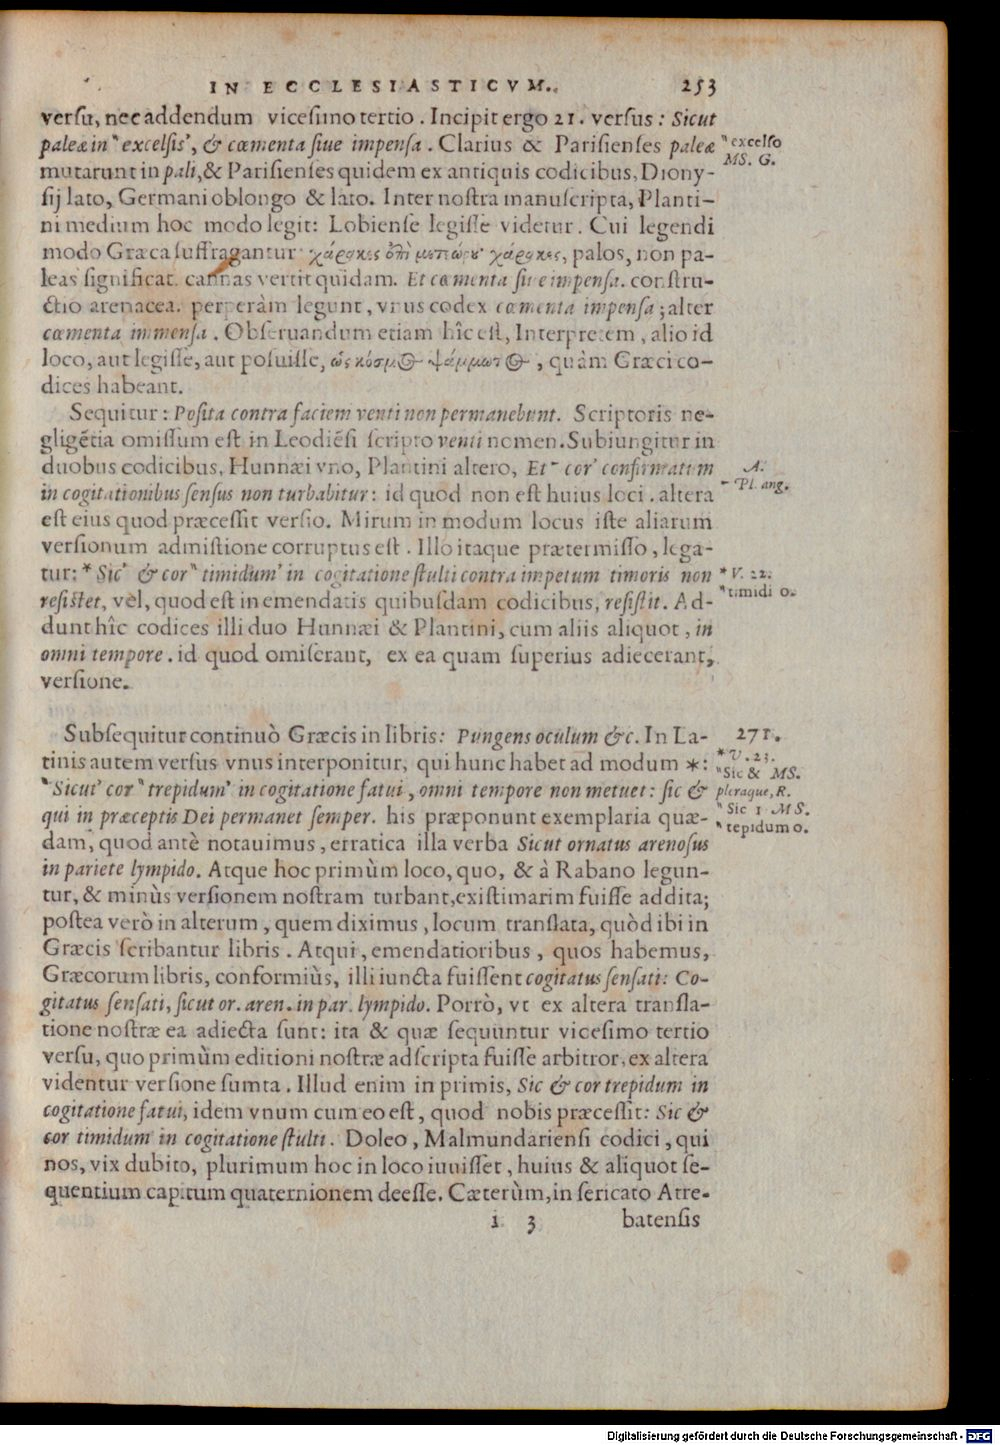 IN ECCLESIASTICVM. 253
versu, nec addendum vicesimo tertio. Incipit ergo 21. versus: Sicut
paleæ in "excelsis', & cæmenta siue impensa. Clarius & Parisienses paleæ
"excelso
MS. G.
mutarunt in pali, & Parisienses quidem ex antiquis codicibus, Diony-
sij lato, Germani oblongo & lato. Inter nostra manuscripta, Planti-
ni medium hoc modo legit: Lobiense legisse videtur. Cui legendi
modo Græca suffragantur χάρακες ἐπὶ μετεώρου χάρακες, palos, non pa-
leas significat. cannas vertit quidam. Et cæmenta siue impensa. constru-
ctio arenacea. perperàm legunt, vnus codex cæmenta impensa; alter
cæmenta immensa. Obseruandum etiam hîc est, Interpretem, alio id
loco, aut legisse, aut posuisse, ὡς κόσμος ψάμμωτος, quàm Græci co-
dices habeant.
Sequitur: Posita contra faciem venti non permanebunt. Scriptoris ne-
gligētia omissum est in Leodiēsi scripto venti nomen. Subiungitur in
duobus codicibus, Hunnæi vno, Plantini altero, Et cor' confirmatum
A.
Pl. ang.
in cogitationibus sensus non turbabitur: id quod non est huius loci. altera
est eius quod præcessit versio. Mirum in modum locus iste aliarum
versionum admistione corruptus est. Illo itaque prætermisso, lega-
tur: * Sic' & cor "timidum' in cogitatione stulti contra impetum timoris non
* V. 22.
"timidi o.
resistet, vel, quod est in emendatis quibusdam codicibus, resistit. Ad-
dunt hîc codices illi duo Hunnæi & Plantini, cum aliis aliquot, in
omni tempore. id quod omiserant, ex ea quam superius adiecerant,
versione.
Subsequitur continuò Græcis in libris: Pungens oculum &c. In La-
271.
tinis autem versus vnus interponitur, qui hunc habet ad modum *:
* V. 23.
"Sic & MS.
pleraque, R.
"Sicut' cor "trepidum' in cogitatione fatui, omni tempore non metuet: sic &
"Sic 1 MS.
"tepidum o.
qui in præceptis Dei permanet semper. his præponunt exemplaria quæ-
dam, quod antè notauimus, erratica illa verba Sicut ornatus arenosus
in pariete lympido. Atque hoc primùm loco, quo, & à Rabano legun-
tur, & minùs versionem nostram turbant, existimarim fuisse addita;
postea verò in alterum, quem diximus, locum translata, quòd ibi in
Græcis scribantur libris. Atqui, emendatioribus, quos habemus,
Græcorum libris, conformiùs, illi iuncta fuissent cogitatus sensati: Co-
gitatus sensati, sicut or. aren. in par. lympido. Porrò, vt ex altera transla-
tione nostræ ea adiecta sunt: ita & quæ sequuntur vicesimo tertio
versu, quo primùm editioni nostræ adscripta fuisse arbitror, ex altera
videntur versione sumta. Illud enim in primis, Sic & cor trepidum in
cogitatione fatui, idem vnum cum eo est, quod nobis præcessit: Sic &
cor timidum in cogitatione stulti. Doleo, Malmundariensi codici, qui
nos, vix dubito, plurimum hoc in loco iuuisset, huius & aliquot se-
quentium capitum quaternionem deesse. Cæterùm, in sericato Atre-
i 3 batensis
Digitalisierung gefördert durch die Deutsche Forschungsgemeinschaft - DFG